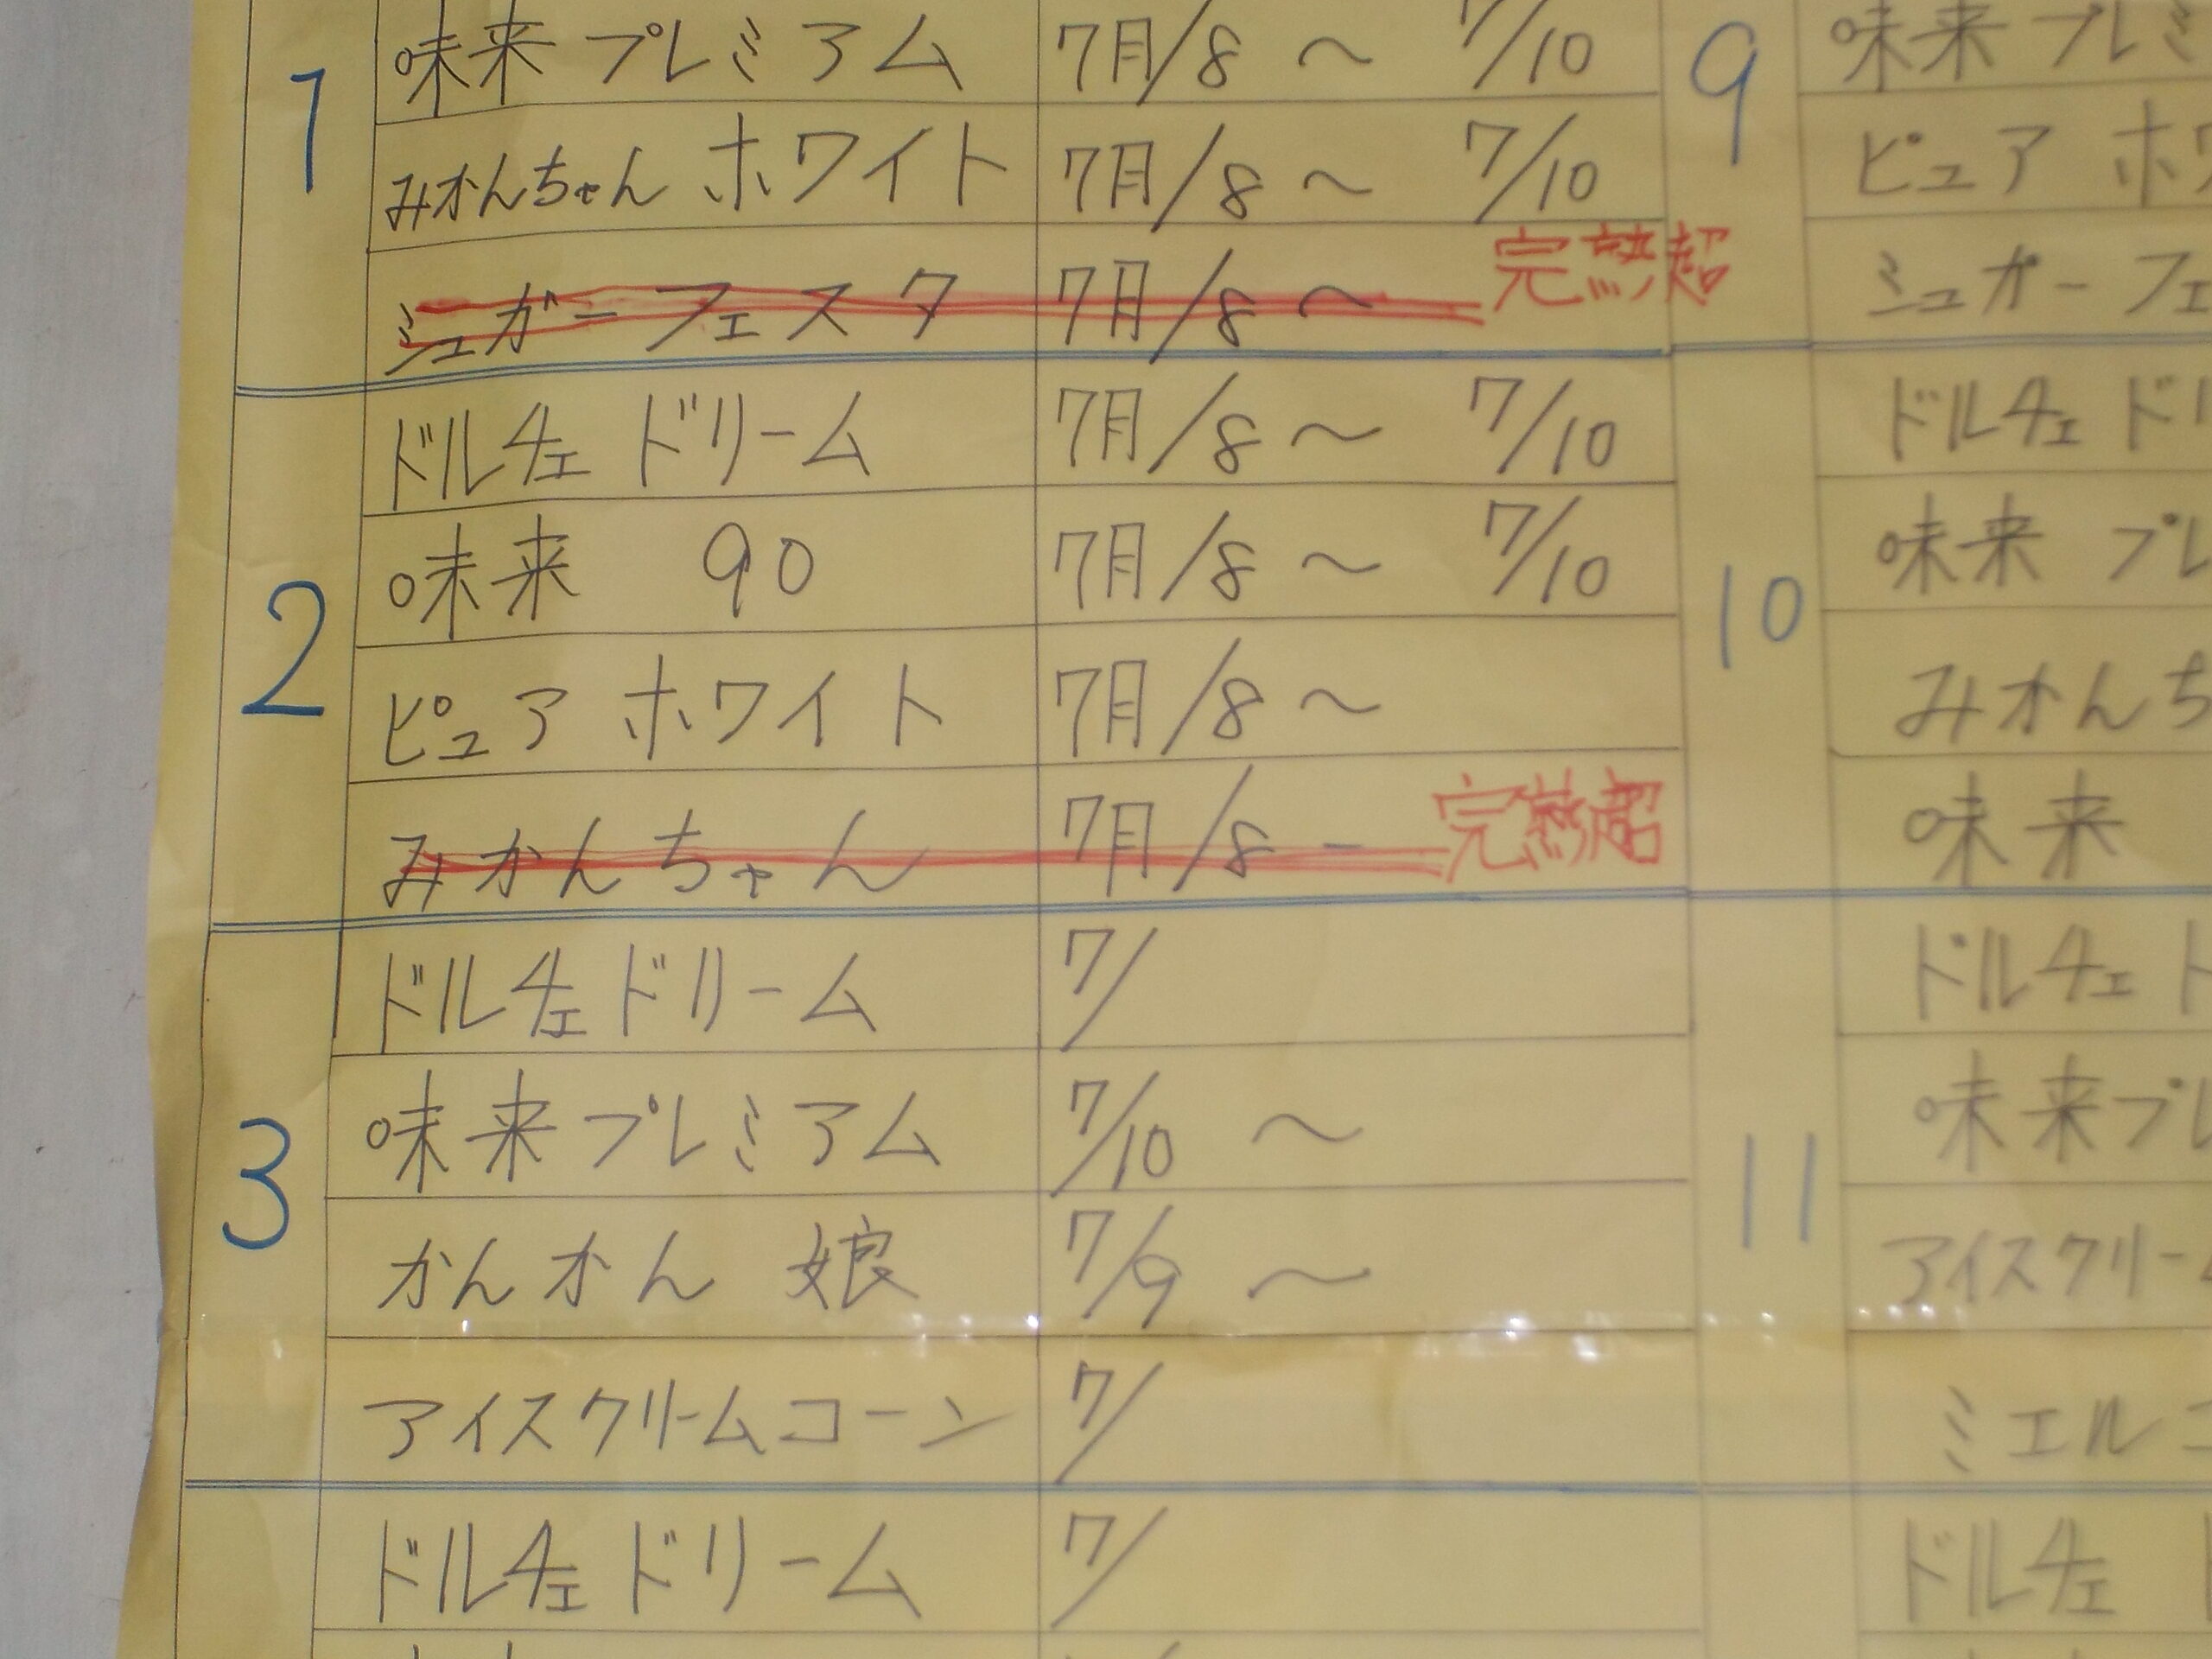 1
味来プレミアム 7月/8 ～ 7/10
みかんちゃん ホワイト 7月/8 ～ 7/10
シュガーフェスタ 7月/8 ～ 完熟超
2
ドルチェ ドリーム 7月/8 ～ 7/10
味来 90 7月/8 ～ 7/10
ピュア ホワイト 7月/8 ～
みかんちゃん 7月/8 - 完熟超
3
ドルチェドリーム 7/
味来プレミアム 7/10 ～
かんかん娘 7/9 ～
アイスクリームコーン 7/
ドルチェ ドリーム 7/
9
味来 プレミ
ピュア ホワ
シュガーフェ
10
ドルチェ ドリ
味来 プレ
みかんち
味来
11
ドルチェ ト
味来プレ
アイスクリー
ミエルコ
ドルチェ